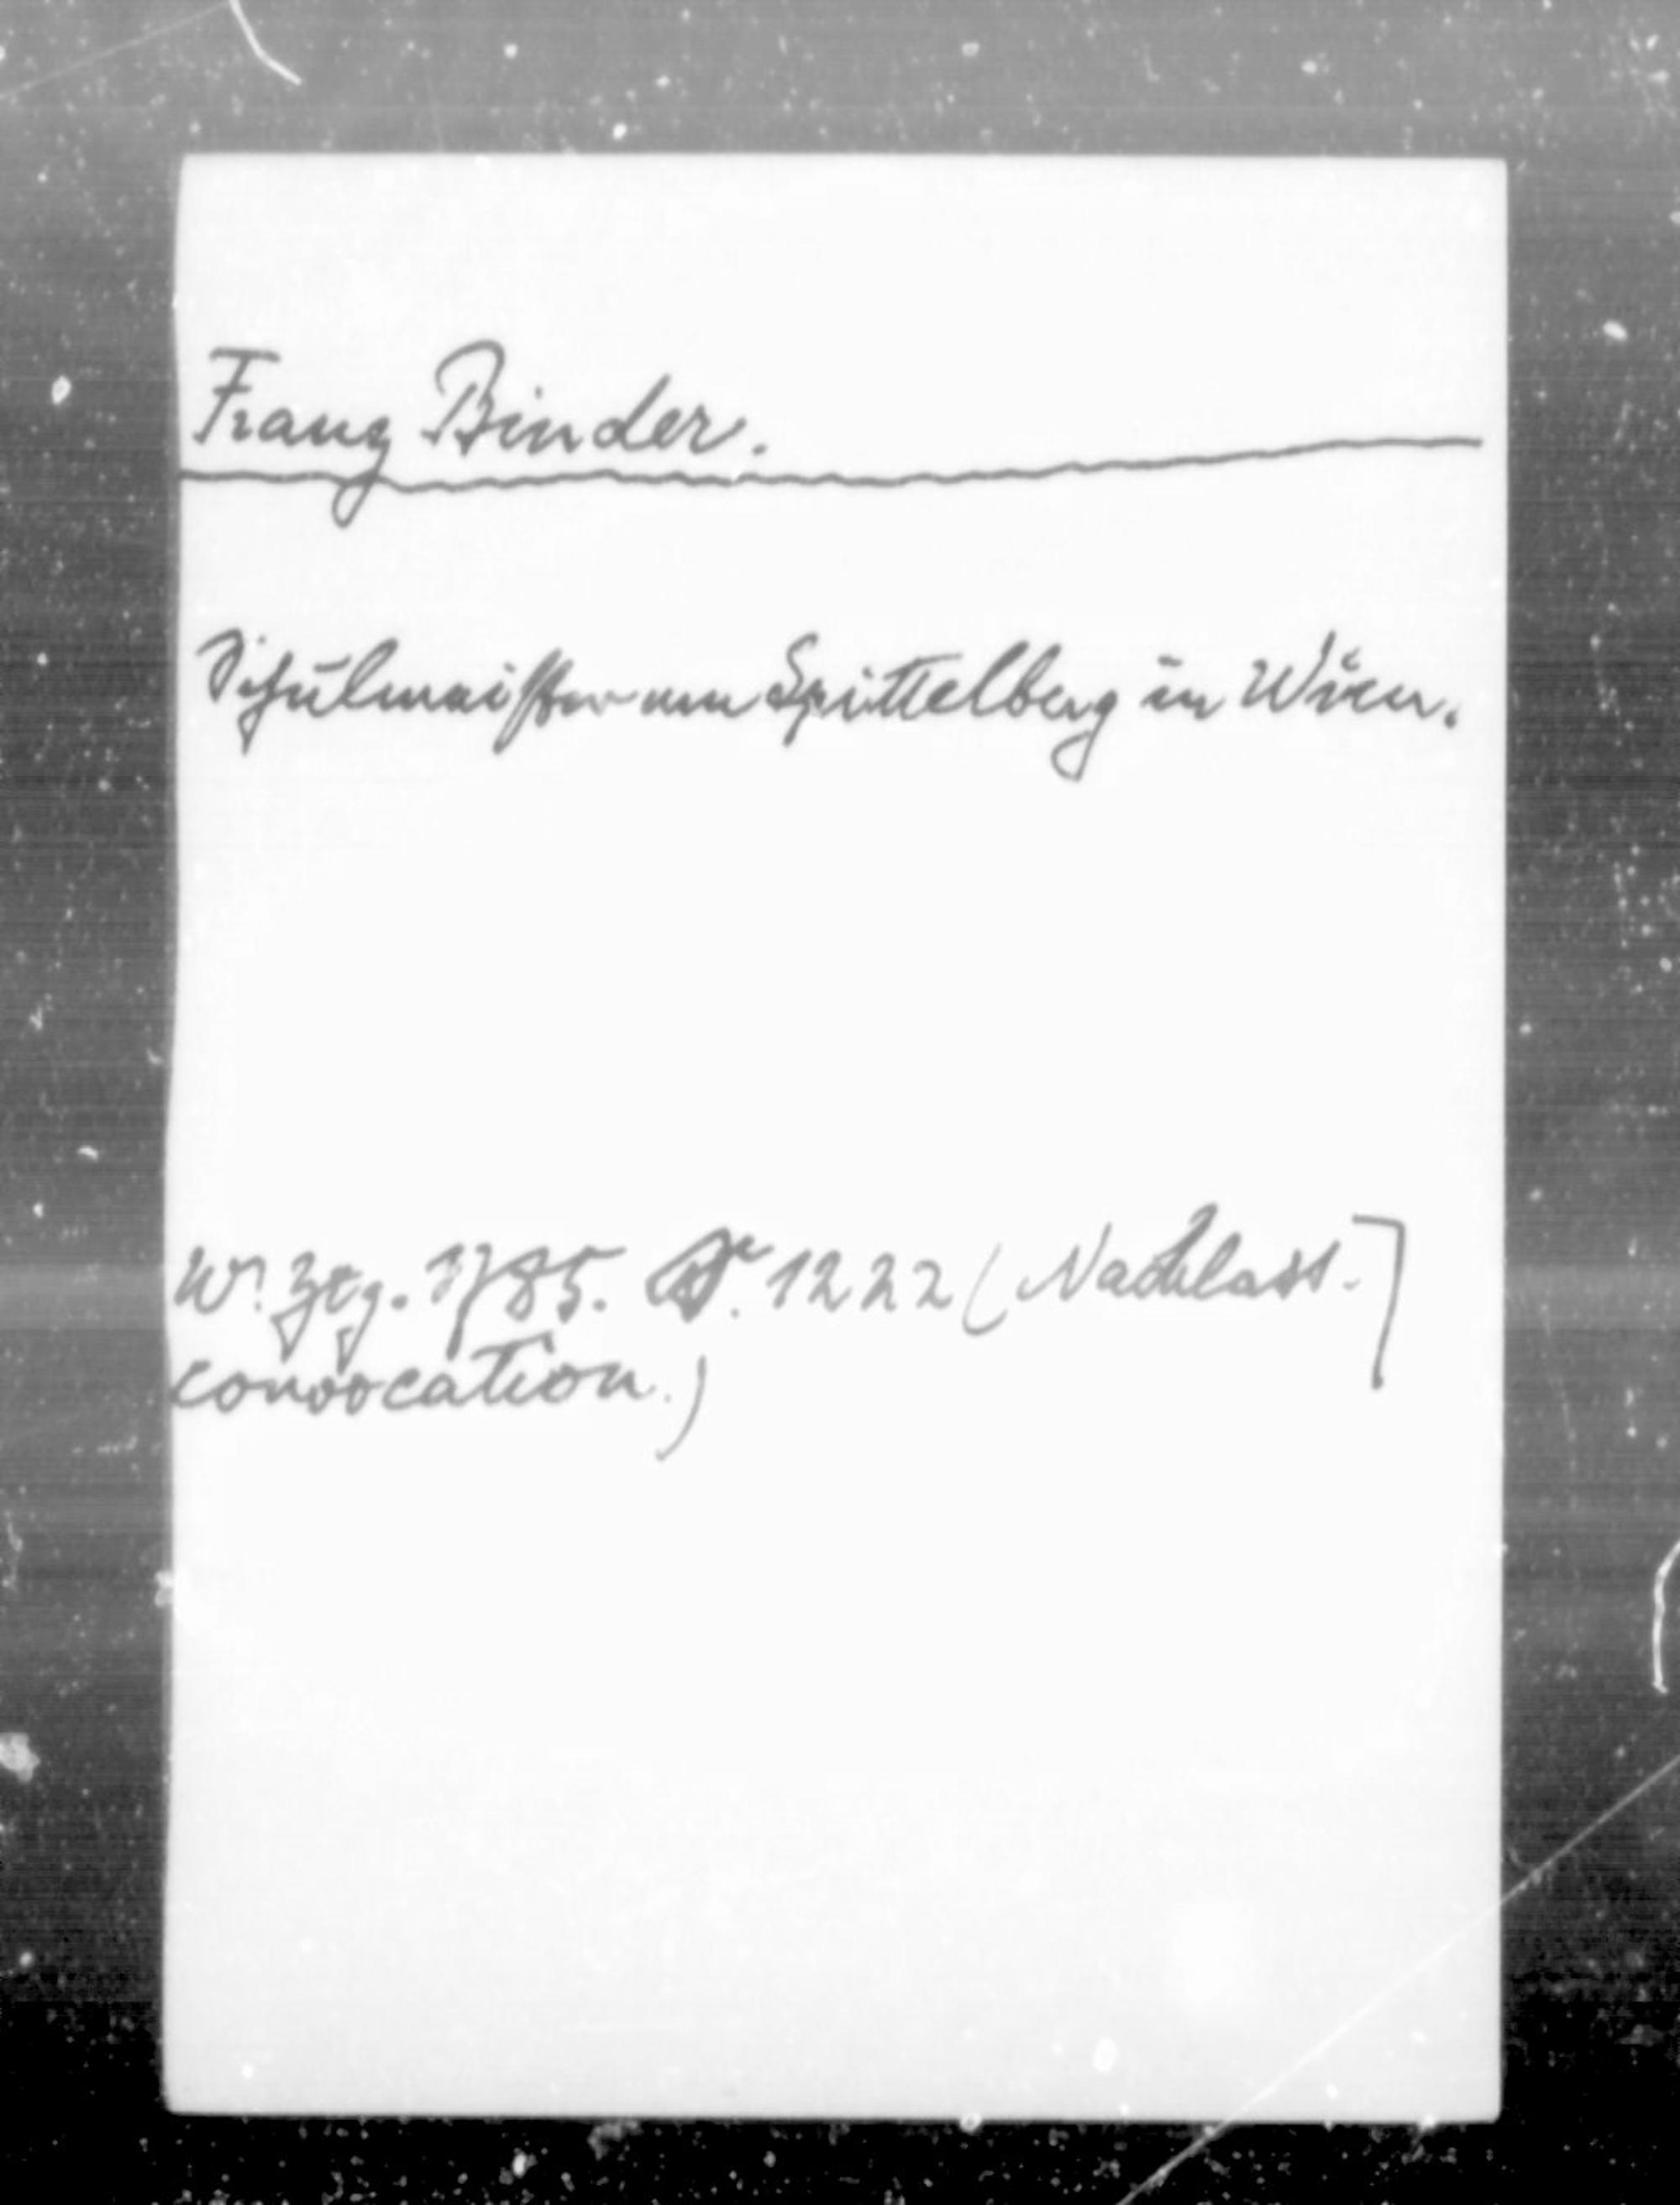 Franz Binder.
Schulmeister am Spittelberg in Wien.
Wr. Ztg. 1785. S. 1222 (Nachlass-
convocation.)